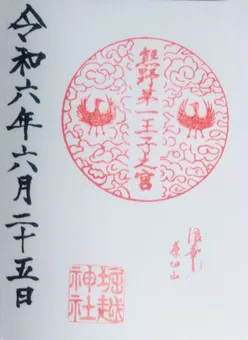 令和六年六月二十五日
熊野第一王子之宮
堀越
神社